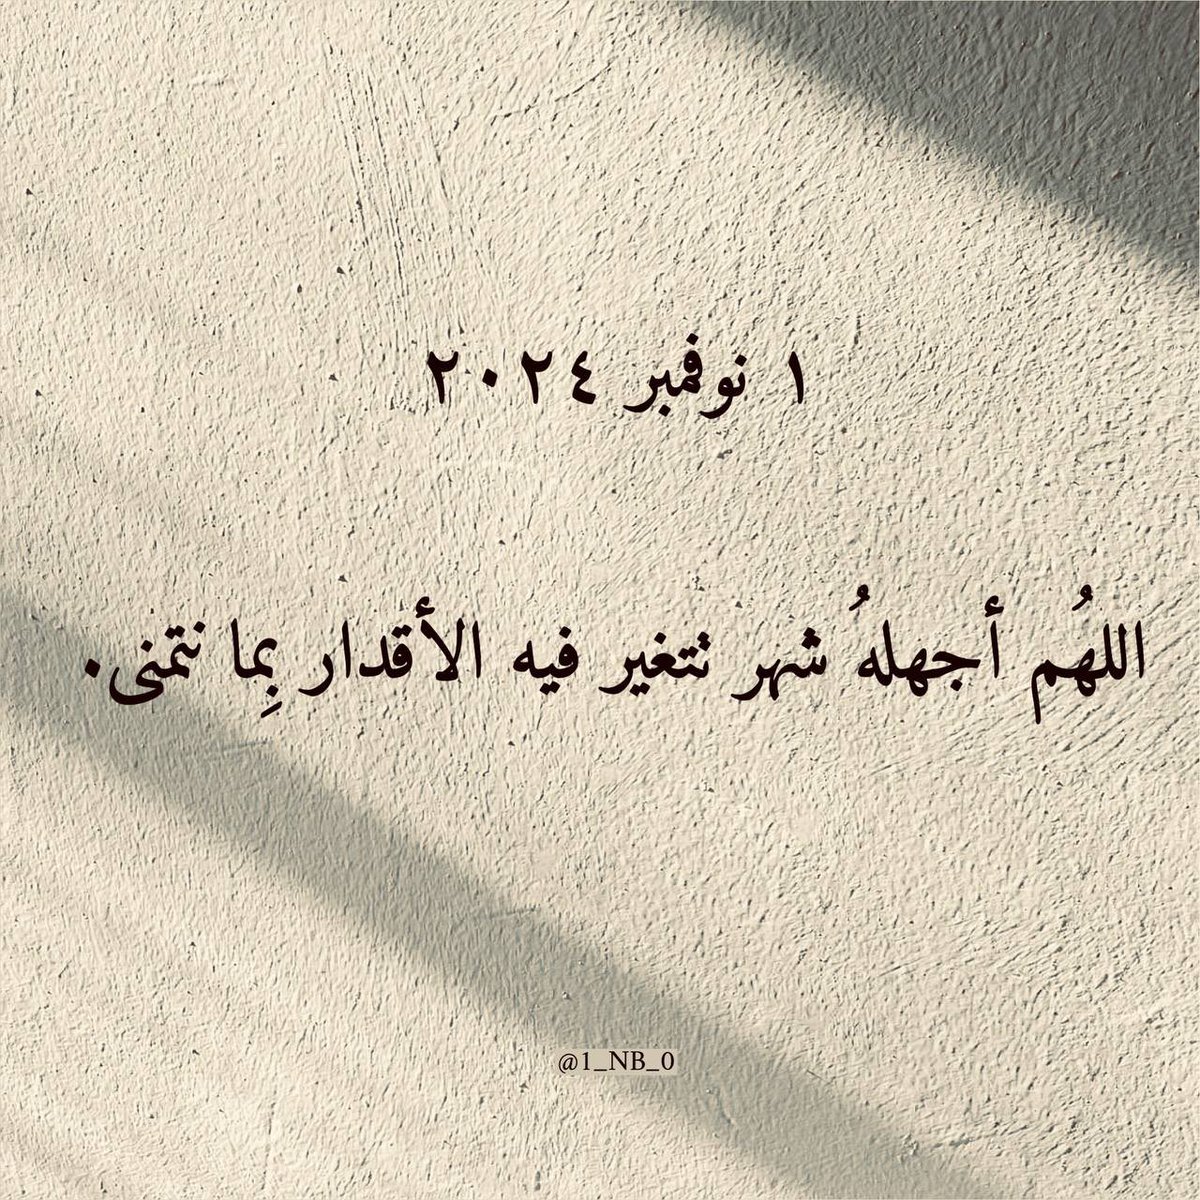 ١ نوفمبر ٢٠٢٤
اللهُم أجهلهُ شهر تتغير فيه الأقدار بِما نتمنى.
@1_NB_0